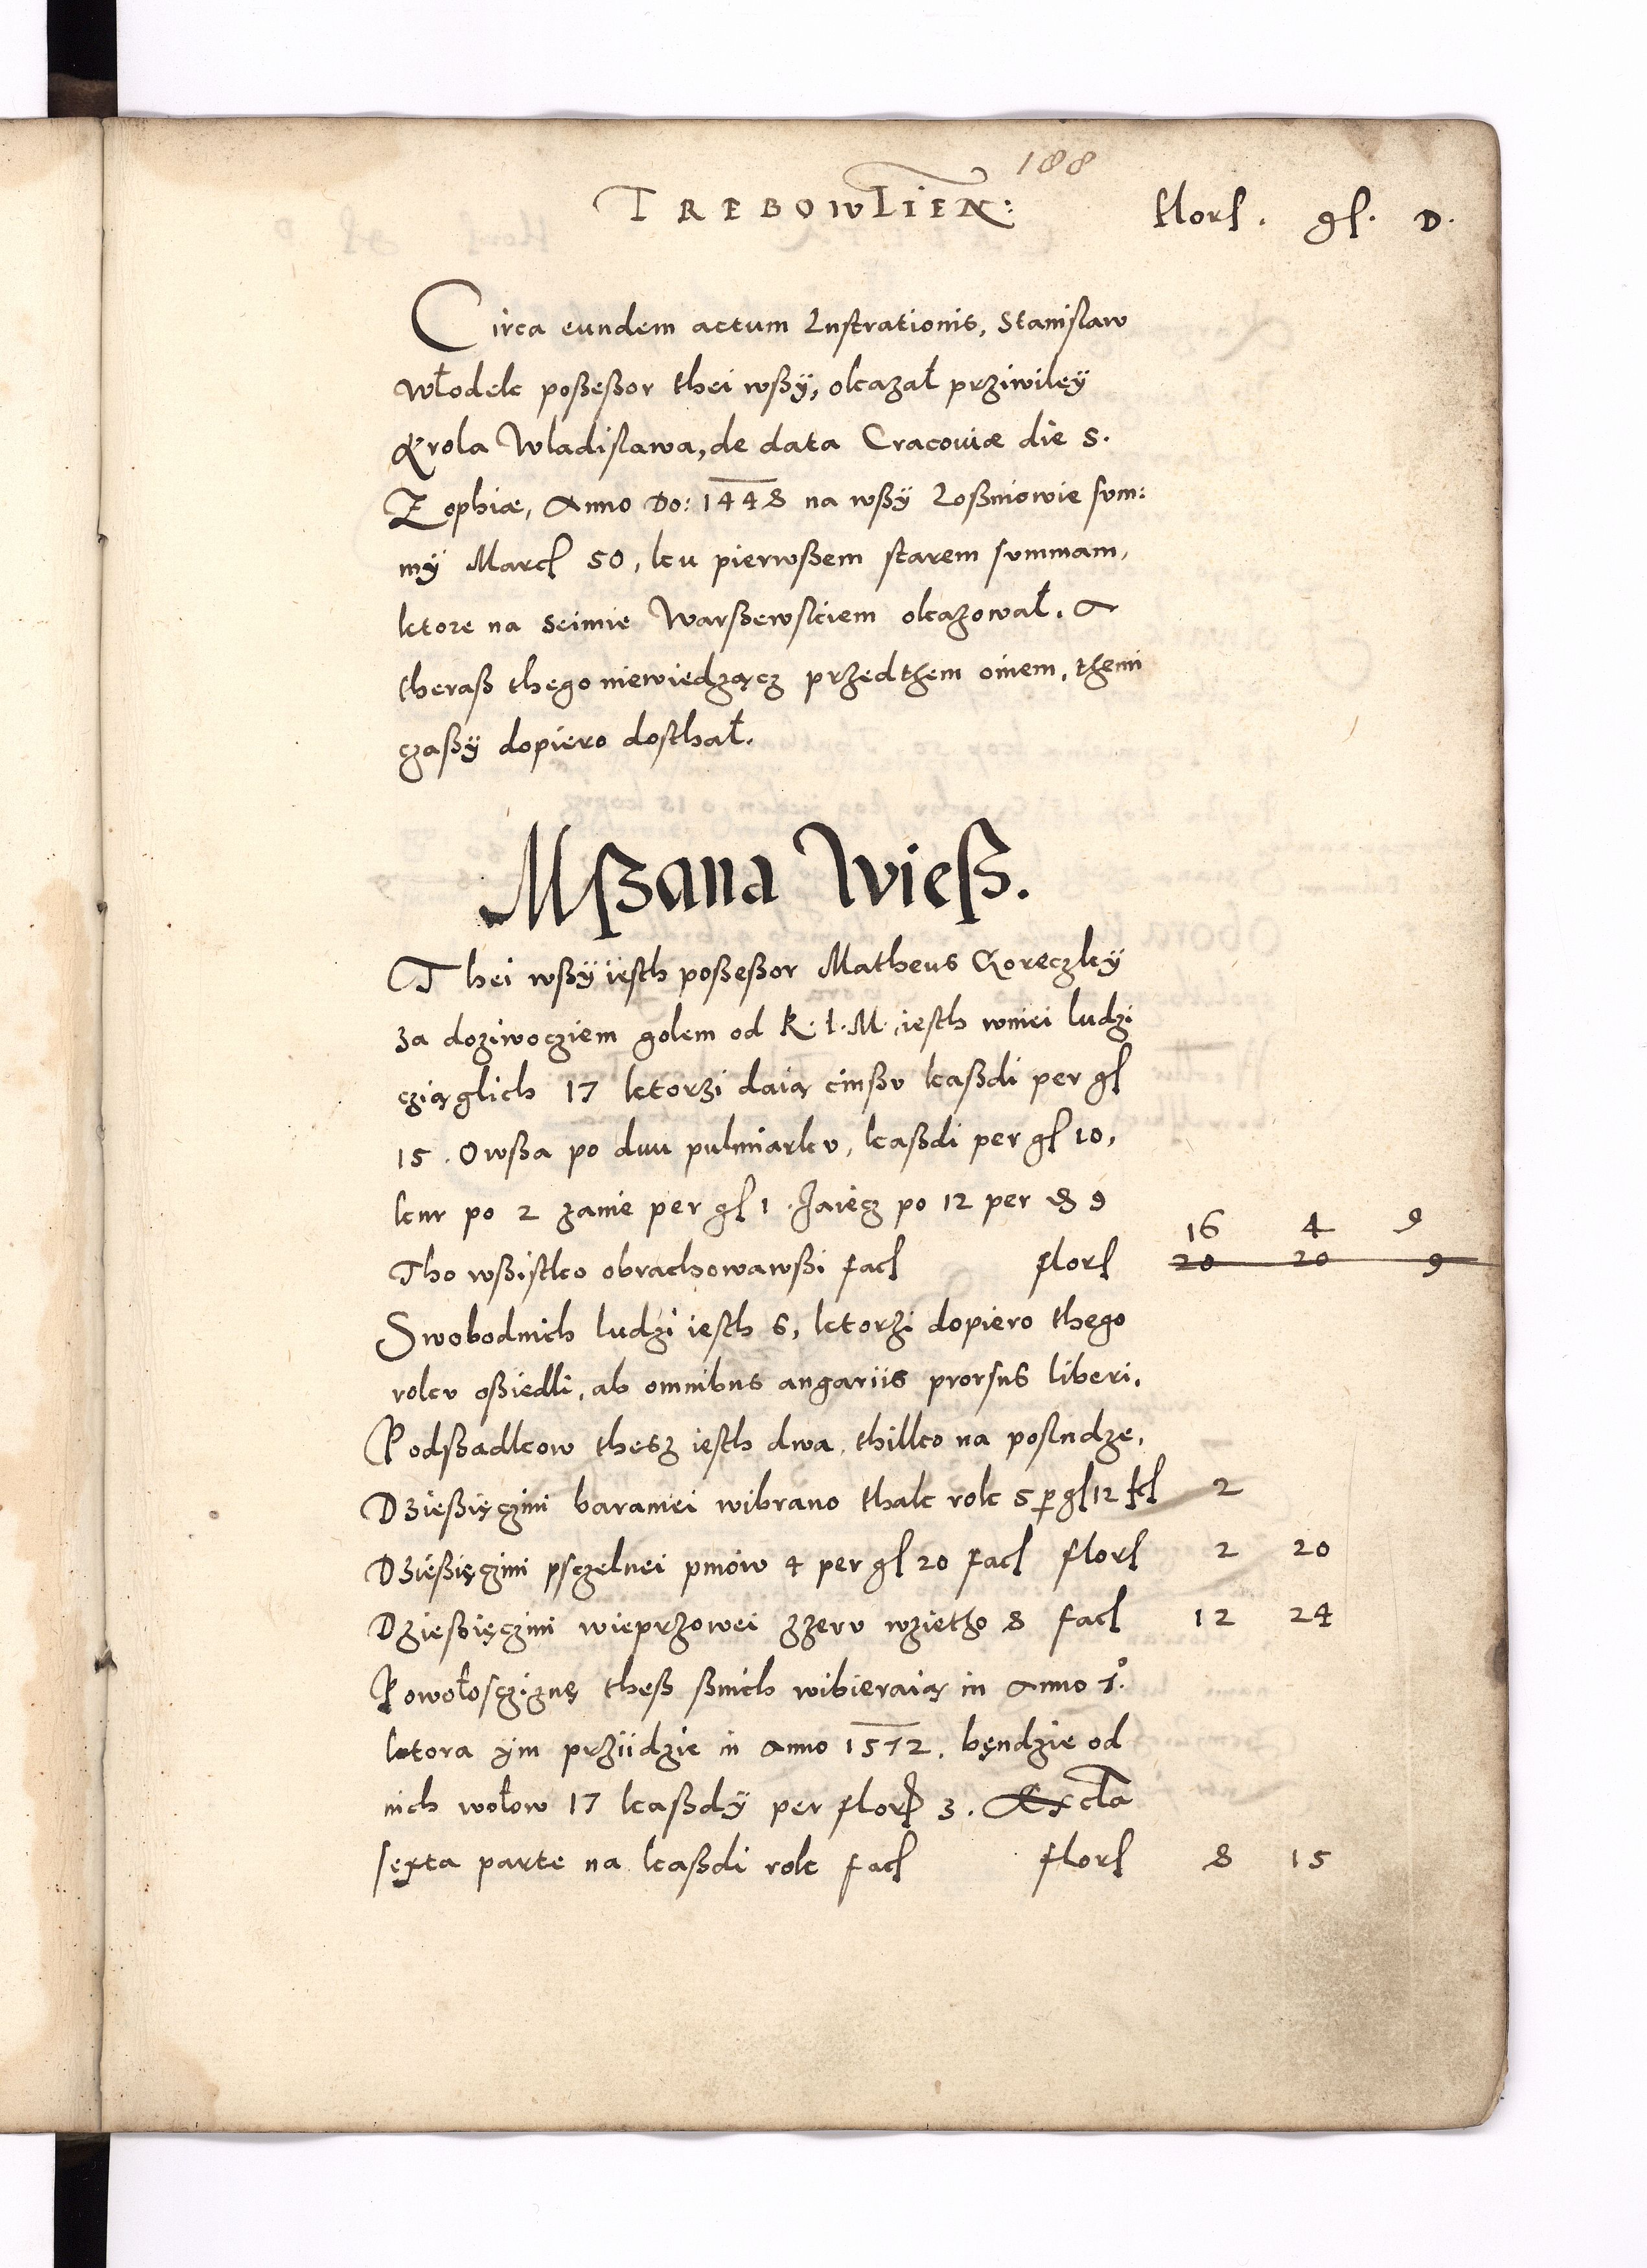 188
TREBOWLIEN: florſ. gſ. D.
Circa eundem actum Lustrationis, Stanislaw
Włodek poßeßor thei wßÿ, okazał prziwileÿ
Krola Wladislawa, de data Cracoviæ die S.
Zophiæ, Anno Do: 1448 na wßÿ Loßniowie sum:
mÿ Marcſ 50, ku pierwßem starem summam,
ktore na Seimie Warßewskiem okazował. A
theraß thego niewiedzącz przedthem oinem, themi
czaßÿ dopiero dosthał.
Mßana Wieß.
Thei wßÿ iesth poßeßor Matheus Koreczkÿ
za doziwocziem golem od K. I. M. iesth wniei ludzi
cziąglich 17 ktorzi daią cinßu kaßdi per gſ
15. Owßa po dwu pulmiarku, kaßdi per gſ 10,
kur po 2 zanie per gſ 1. Jaiecz po 12 per D 9
16 4 9
Tho wßistko obrachowawßi facſ florſ 20 20 9
Swobodnich ludzi iesth 6, ktorzi dopiero thego
roku oßiedli, ab omnibus angariis prorsus liberi.
Podßadkow thesz iesth dwa, thilko na posludze,
Dzießięczini baraniei wibrano thak rok 5 per gſ 12 fcſ 2
Dzießięczini psczelnei pniow 4 per gſ 20 facſ florſ 2 20
Dzießięczini wieprzowei zzeru wzietho 8 facſ 12 24
Powołoscziznę theß ßnich wibieraią in Anno 7º.
ktora ÿm prziidzie in Anno 1572. będzie od
nich wołow 17 kaßdÿ per florſ 3.
sexta parte na kaßdi rok facſ florſ 8 15